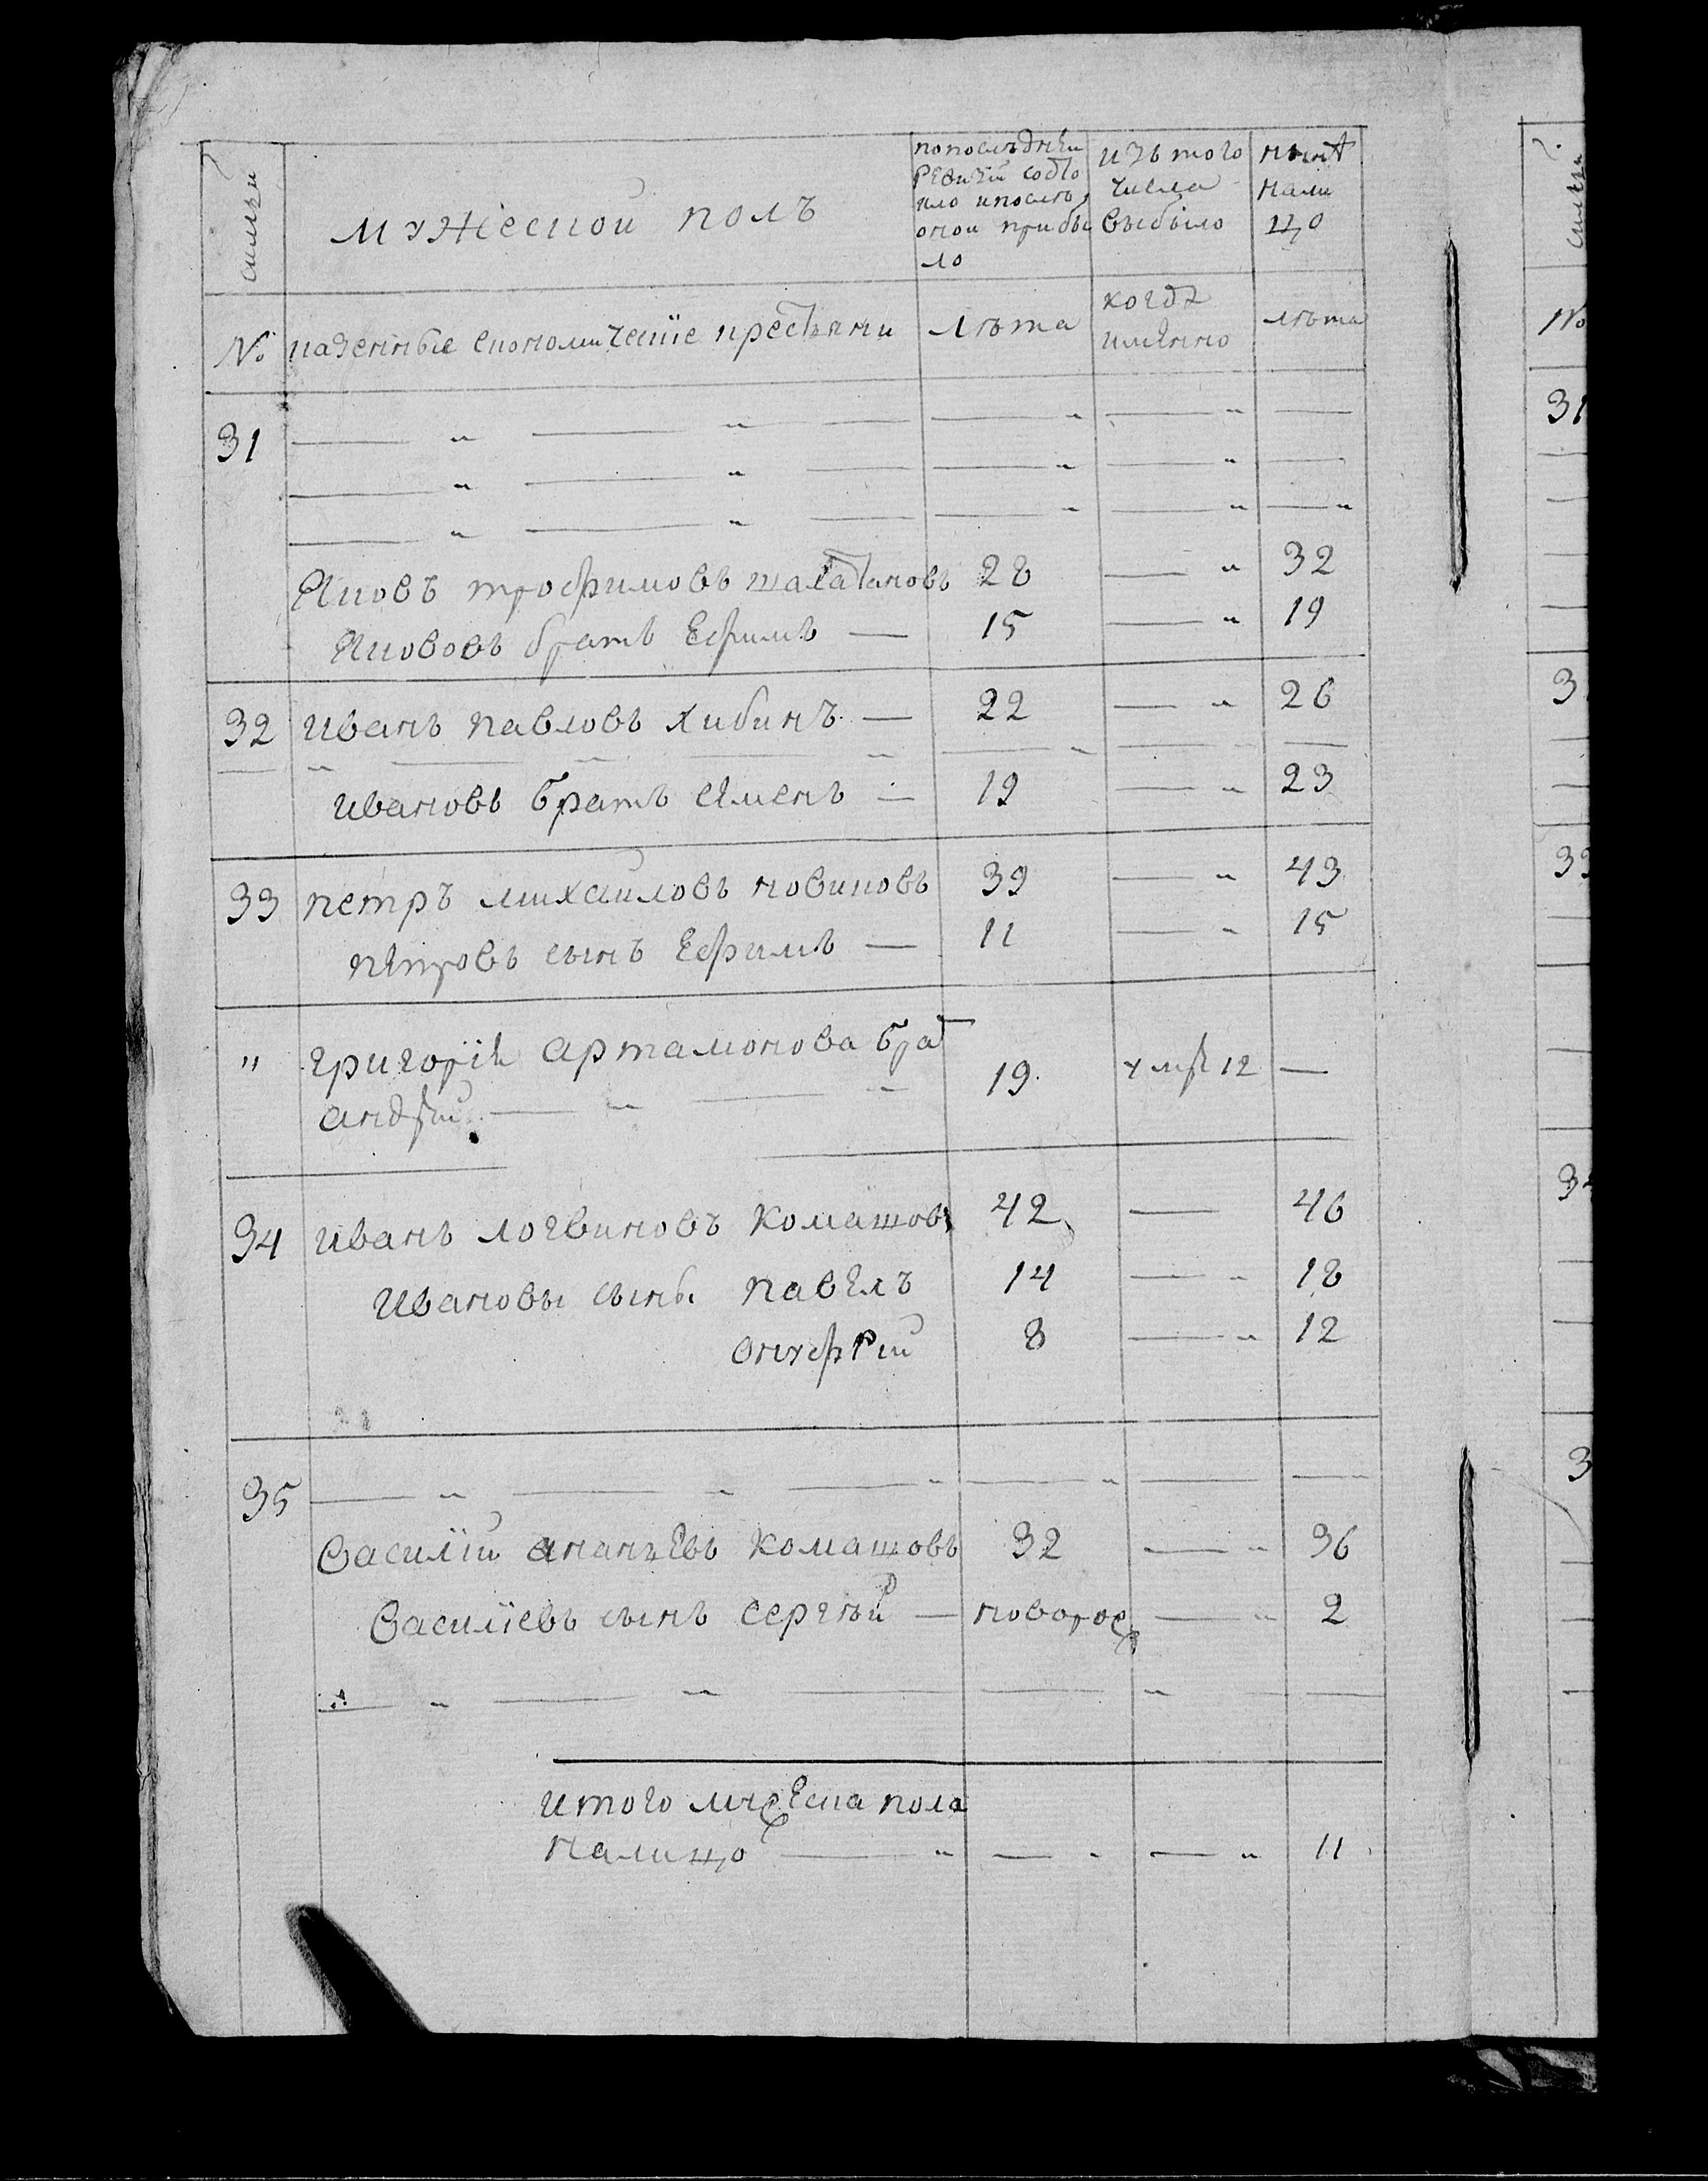 семьи
мужескои полъ
попослѣдней
ревизіи состо
яло ипослѣ
оной прибы
ло
изъ того
числа
выбыло
нынѣ
нали
цо
№ казенные економическіе крестьяни лѣта
когда
имянно
лѣта
31 — " — " — — " — " —
— " — " — — " — " —
— " — " — — " — " — "
Яковъ трофимовъ 28 — " 32
Яковов братъ Ефимъ — 15 — " 19
32 иванъ павловъ хибинъ — 22 — " 26
— " — " — " — " — " —
ивановъ братъ семенъ — 19 — " 23
33 петръ михаиловъ новиковъ 39 — " 43
петровъ сынъ Ефимъ — 11 — " 15
" григорія артамонова бра
андрей — " — " 19 умре 12 —
34 иванъ логвиновъ комашовъ 42 — 46
ивановы сыны павелъ 14 — " 18
онуфрій 8 — " 12
35 — " — " — " — " — —
василій ананьевъ комашовъ 32 — " 36
василіевъ сынъ сергѣй —новорож — " 2
— " — " — — " —
итого мужеска пола
налицо — " — " — " 11
№
31
3
33
34
3